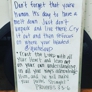 Don't forget that you're
human. It's okay to have a
melt down. Just don't
unpack and live there. Cry
it out and then refocus
on where you're headed
Trust the Lord with all
your heart and lean not
on your own understanding
in all your ways
and he will make
your paths
Proverbs 3:5-6